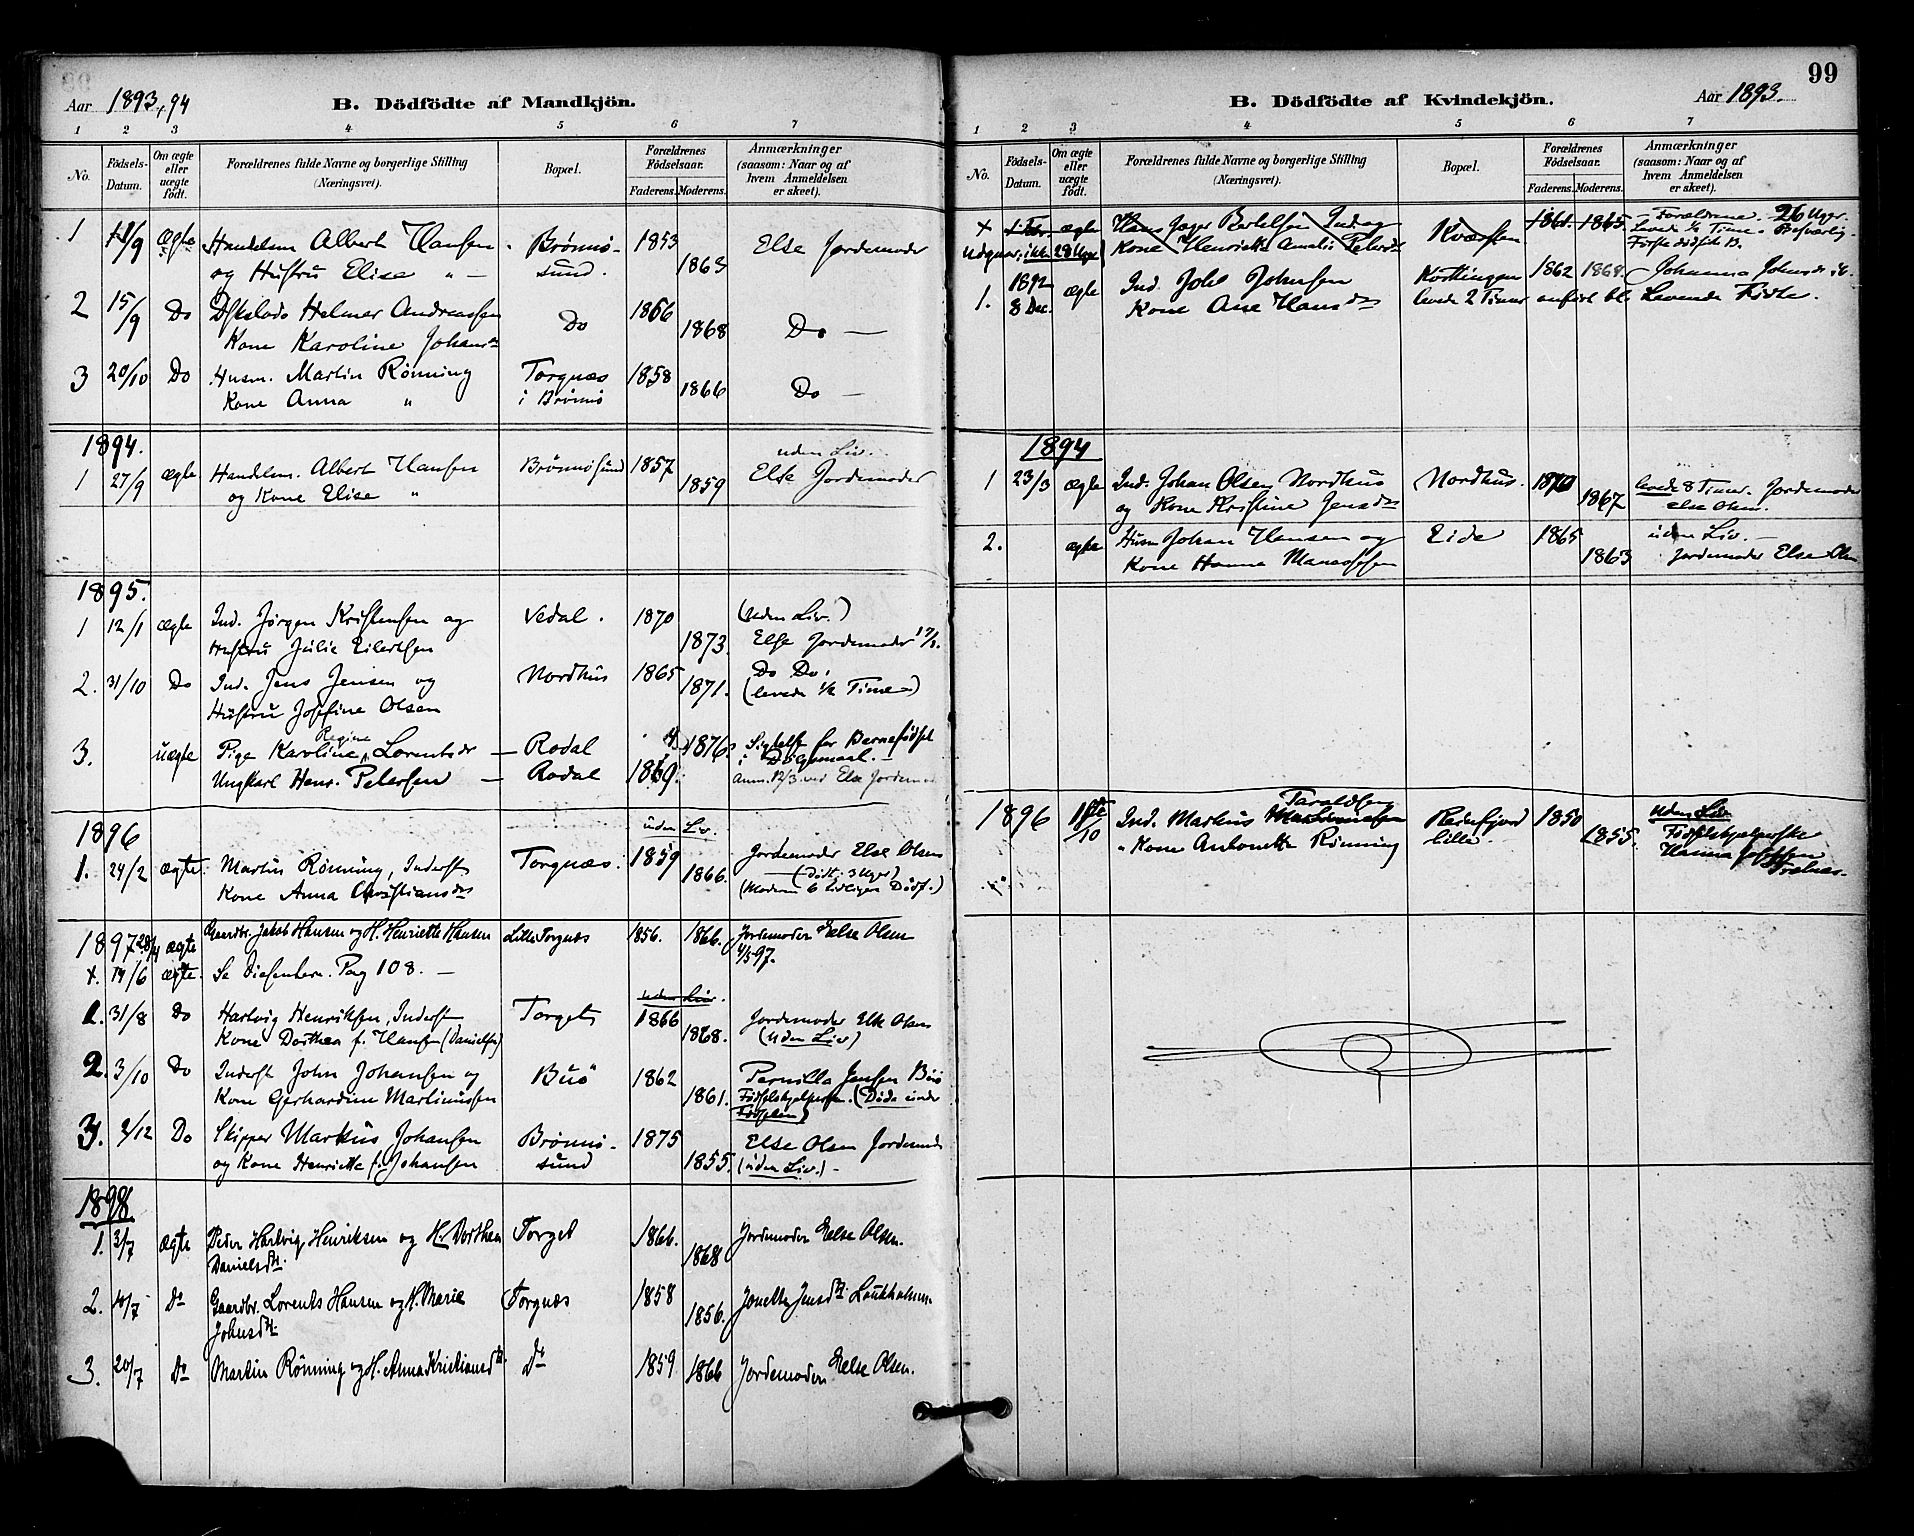 Aar 1893,94 B. Dödfödte af Mandkjön.
1 2 3 4 5 6 7
No. Födsels-Datum. Om ægte eller uægte födt. Forældrenes fulde Navne og borgerlige Stilling (Næringsvei). Bopæl. Forældrenes Födselsaar. Faderens. Moderens. Anmærkninger (saasom: Naar og af hvem Anmeldelsen er skeet).
1 11/9 Ægte Handelsm Albert Hansen Brønnø- 1853 Else Jordemoder
og Hustru Elise " — sund. 1863
2 15/9 Do Helmer Andreassen Do 1866 Do —
Kone Karoline Johansdr 1868
3 20/10 Do Husm. Martin Rönning Torgnæs 1858 Do —
Kone Anna " i Brönnö 1866
1894.
uden Liv.
1 27/9 ægte Handelsm. Albert Hansen Brønnøsund 1857 Else Jordemoder
og Kone Elise " 1859
1895.
1 12/1 ægte Ind. Jörgen Kristensen og Vedal. 1870 (uden Liv.)
Hustru Julie Eilertsen 1873. Else Jordemoder
2. 31/10 Do Ind. Jens Jensen og Nordhus 1865 Do Do.
Hustru Josefine Olsen 1871. (levede 1/2 Time)
3. uægte Pige Karoline Regine Lorentsdr — Rodal 1876 for Barnefödsel
Ungkarl Henr. Petersen — Rodal 1869. i Dölgsmaal. —
Anm. 12/3 ved Else Jordemo
1896
uden Liv.
1. 24/2 ægte. Martin Rönning, Inderst Torgnæs. 1859 Jordemoder Else Olsen
Kone Anna Christiansdr 1866. (Dödt. 3 Uger)
(Moderen 6 tidligere Dödf.)
1897 28/4 ægte Gaardbr. Jakob Hansen og H. Henriette Hansen Lille Torgnæs 1856. 1866. Jordemoder Else Olsen 4/5 97.
x. 14/6 ægte. Se Pag 108. —
uden Liv.
1. 31/8 Do Hartvig Henriksen, Inderst Torget 1866 Jordemoder Else Olsen
Kone Dorthea f. Hansen (Danielsen) 1868. (uden Liv)
2. 3/10 Do Inderst John Johansen og Buö 1862 Pernilla Jensen Buö
Kone Gerhardine Martinussen 1861. Födselshjelperske. (Döde under Födselen)
3. 2/12 Do Skipper Markus Johansen Brönnö- 1875 Else Olsen Jordemoder
og Kone Henriette f. Johansen sund 1855. (uden Liv.) —
1898
1. 3/7 ægte Peder Hartvig Henriksen og H. Dorthea Torget 1866. Jordemoder Else Olsen.
Danielsdtr. 1868
2. 10/7 Do Gaardbr. Lorents Hansen og H. Marie Torgnæs 1858 Jonette Jensdtr
Johnsdtr. 1856.
3. 20/7 Do Martin Rönning og H. Anna Kristiansdtr. Do 1859 Jordemoder Else Olsen.
1866
99
B. Dödfödte af Kvindekjön. Aar 1893.
1 2 3 4 5 6 7
No. Födsels-Datum. Om ægte eller uægte födt. Forældrenes fulde Navne og borgerlige Stilling (Næringsvei). Bopæl. Forældrenes Födselsaar. Faderens. Moderens. Anmærkninger (saasom: Naar og af hvem Anmeldelsen er skeet).
+ ægte Hans Jæger Bertelsen Ind. og 1861. 1865 Forældrene. 26 Uger.
Udgaar; ikke 28 Uger Kone Henriette Amalie Levede 1/2 Time.
1892
1. 8 Dec. ægte Ind. Johs Johnsen 1862 1868. Johanna
Kone Ane Hansdr levede 2 Timer anført bl. Levende Födte.
1894
1 23/3 ægte Ind. Johan Olsen Nordhus Nordhus. 1870 levede 8 Timer. Jordemoder
og Kone Kristine Jensdr 1867 Else Olsen.
2. ægte Husm Johan Hansen og Eide 1865 uden Liv. —
Kone Hanna Manassesen 1863 Jordemoder Else Olsen
1896 Ind. Markus Taraldsen Reinfjord 1850 Uden Liv
/10 " Kone Antonette Rönning lille. 1855. Födselshjelperske
Hanna